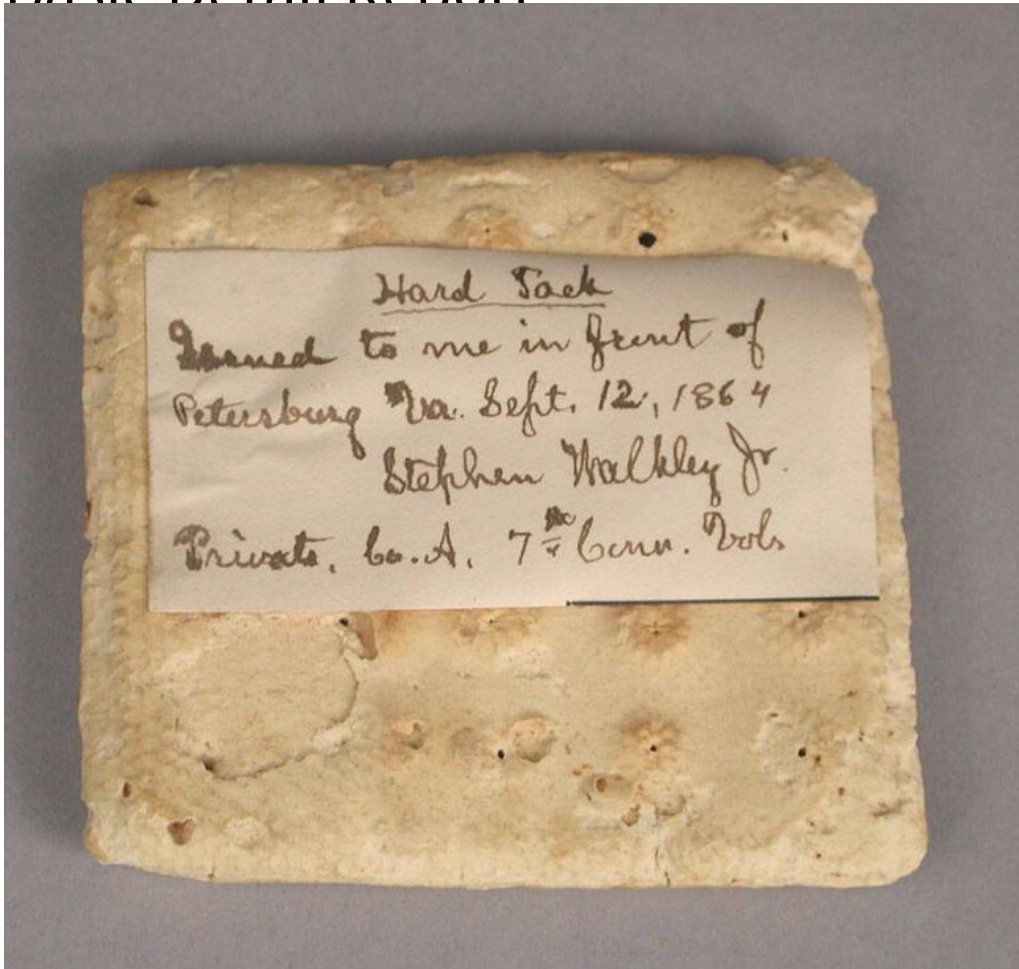 Hard Tack
Issued to me in front of
Petersburg Va. Sept. 12, 1864
Stephen Walkley Jr.
Private, Co. A. 7th Conn. Vols